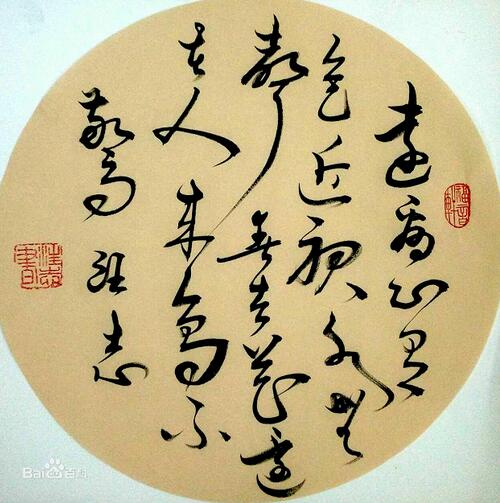 遠看山有
色近聽水無
聲春去花還
在人來鳥不
驚 志
Bai百科